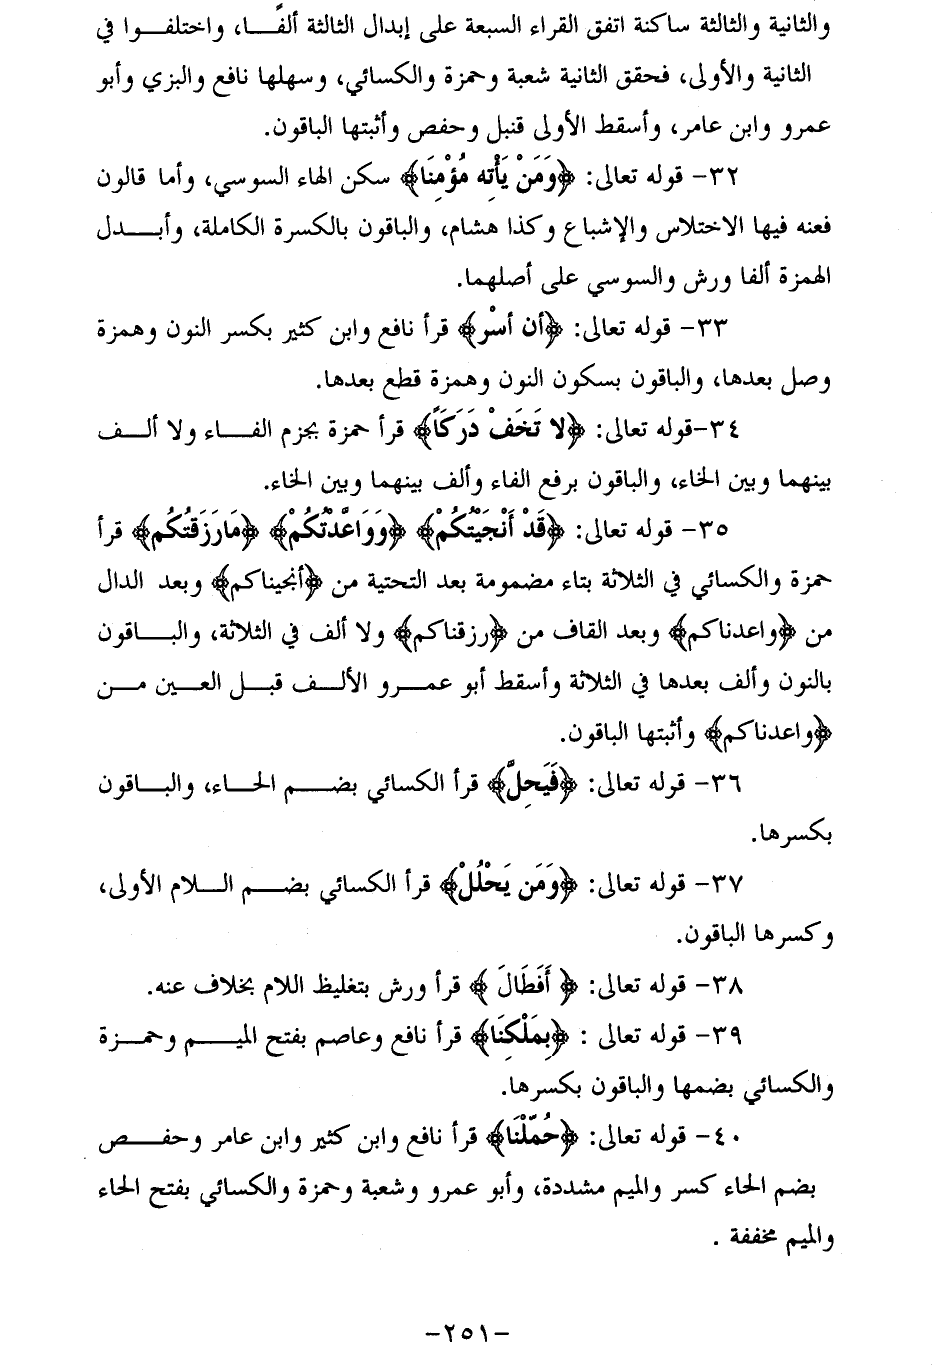 والثانية والثالثة ساكنة اتفق القراء السبعة على إبدال الثالثة ألفًـا، واختلفــوا في
الثانية والأولى، فحقق الثانية شعبة وحمزة والكسائي، وسهلها نافع والبزي وأبو
عمرو وابن عامر، وأسقط الأولى قنبل وحفص وأثبتها الباقون.
٣٢- قوله تعالى: ﴿وَمَنْ يَأْتِه مُؤْمِنَا﴾ سكن الهاء السوسي، وأما قالون
فعنه فيها الاختلاس والإشباع وكذا هشام، والباقون بالكسرة الكاملة، وأبــدل
الهمزة ألفا ورش والسوسي على أصلهما.
٣٣- قوله تعالى: ﴿أن أسْر﴾ قرأ نافع وابن كثير بكسر النون وهمزة
وصل بعدها، والباقون بسكون النون وهمزة قطع بعدها.
٣٤-قوله تعالى: ﴿لا تَخَفْ دَرَكَاً﴾ قرأ حمزة بجزم الفــاء ولا ألــف
بينهما وبين الخاء، والباقون برفع الفاء وألف بينهما وبين الخاء.
٣٥- قوله تعالى: ﴿قَدْ أَنْجَيْتُكُمْ﴾ ﴿وَوَاعَدْتُكُمْ﴾ ﴿مَارَزَقْتُكُم﴾ قرأ
حمزة والكسائي في الثلاثة بتاء مضمومة بعد التحتية من ﴿أنجيناكم﴾ وبعد الدال
من ﴿واعدناكم﴾ وبعد القاف من ﴿رزقناكم﴾ ولا ألف في الثلاثة، والبــاقون
بالنون وألف بعدها في الثلاثة وأسقط أبو عمــرو الألــف قبــل العــين مــن
﴿واعدناكم﴾ وأثبتها الباقون.
٣٦- قوله تعالى: ﴿فَيَحِلَّ﴾ قرأ الكسائي بضــم الحــاء، والبــاقون
بكسرها.
٣٧- قوله تعالى: ﴿وَمَن يَحْلُلْ﴾ قرأ الكسائي بضــم الــلام الأولى،
وكسرها الباقون.
٣٨- قوله تعالى: ﴿ أَفَطَالَ ﴾ قرأ ورش بتغليظ اللام بخلاف عنه.
٣٩- قوله تعالى : ﴿بِمَلْكِنَا﴾ قرأ نافع وعاصم بفتح الميــم وحمــزة
والكسائي بضمها والباقون بكسرها.
٤٠- قوله تعالى: ﴿حُمِّلْنَا﴾ قرأ نافع وابن كثير وابن عامر وحفــص
بضم الحاء كسر والميم مشددة، وأبو عمرو وشعبة وحمزة والكسائي بفتح الحاء
والميم مخففة .
-٢٥١-